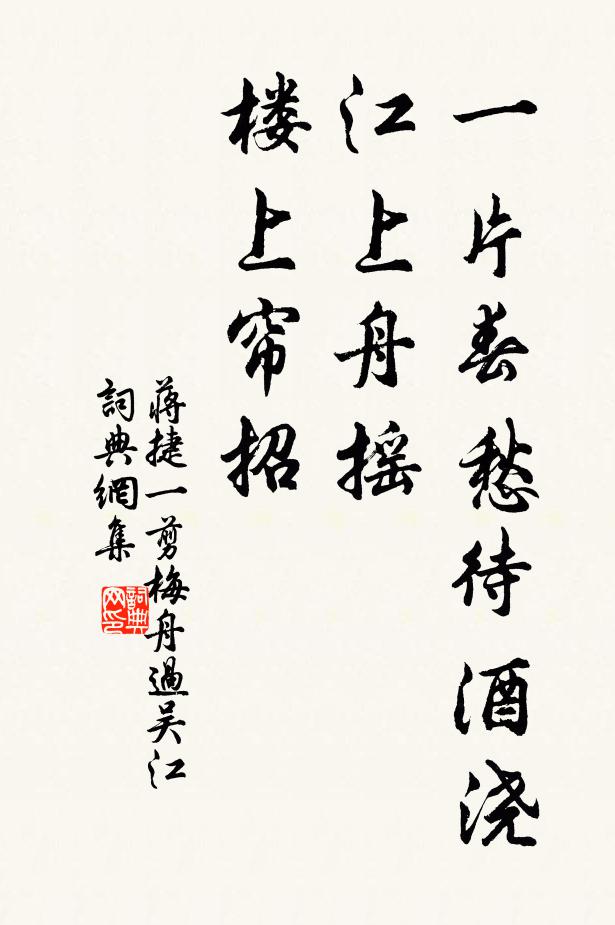 一片春愁待酒浇
江上舟摇
楼上帘招
蒋捷一剪梅舟過吴江
詞典網集
詞典网印